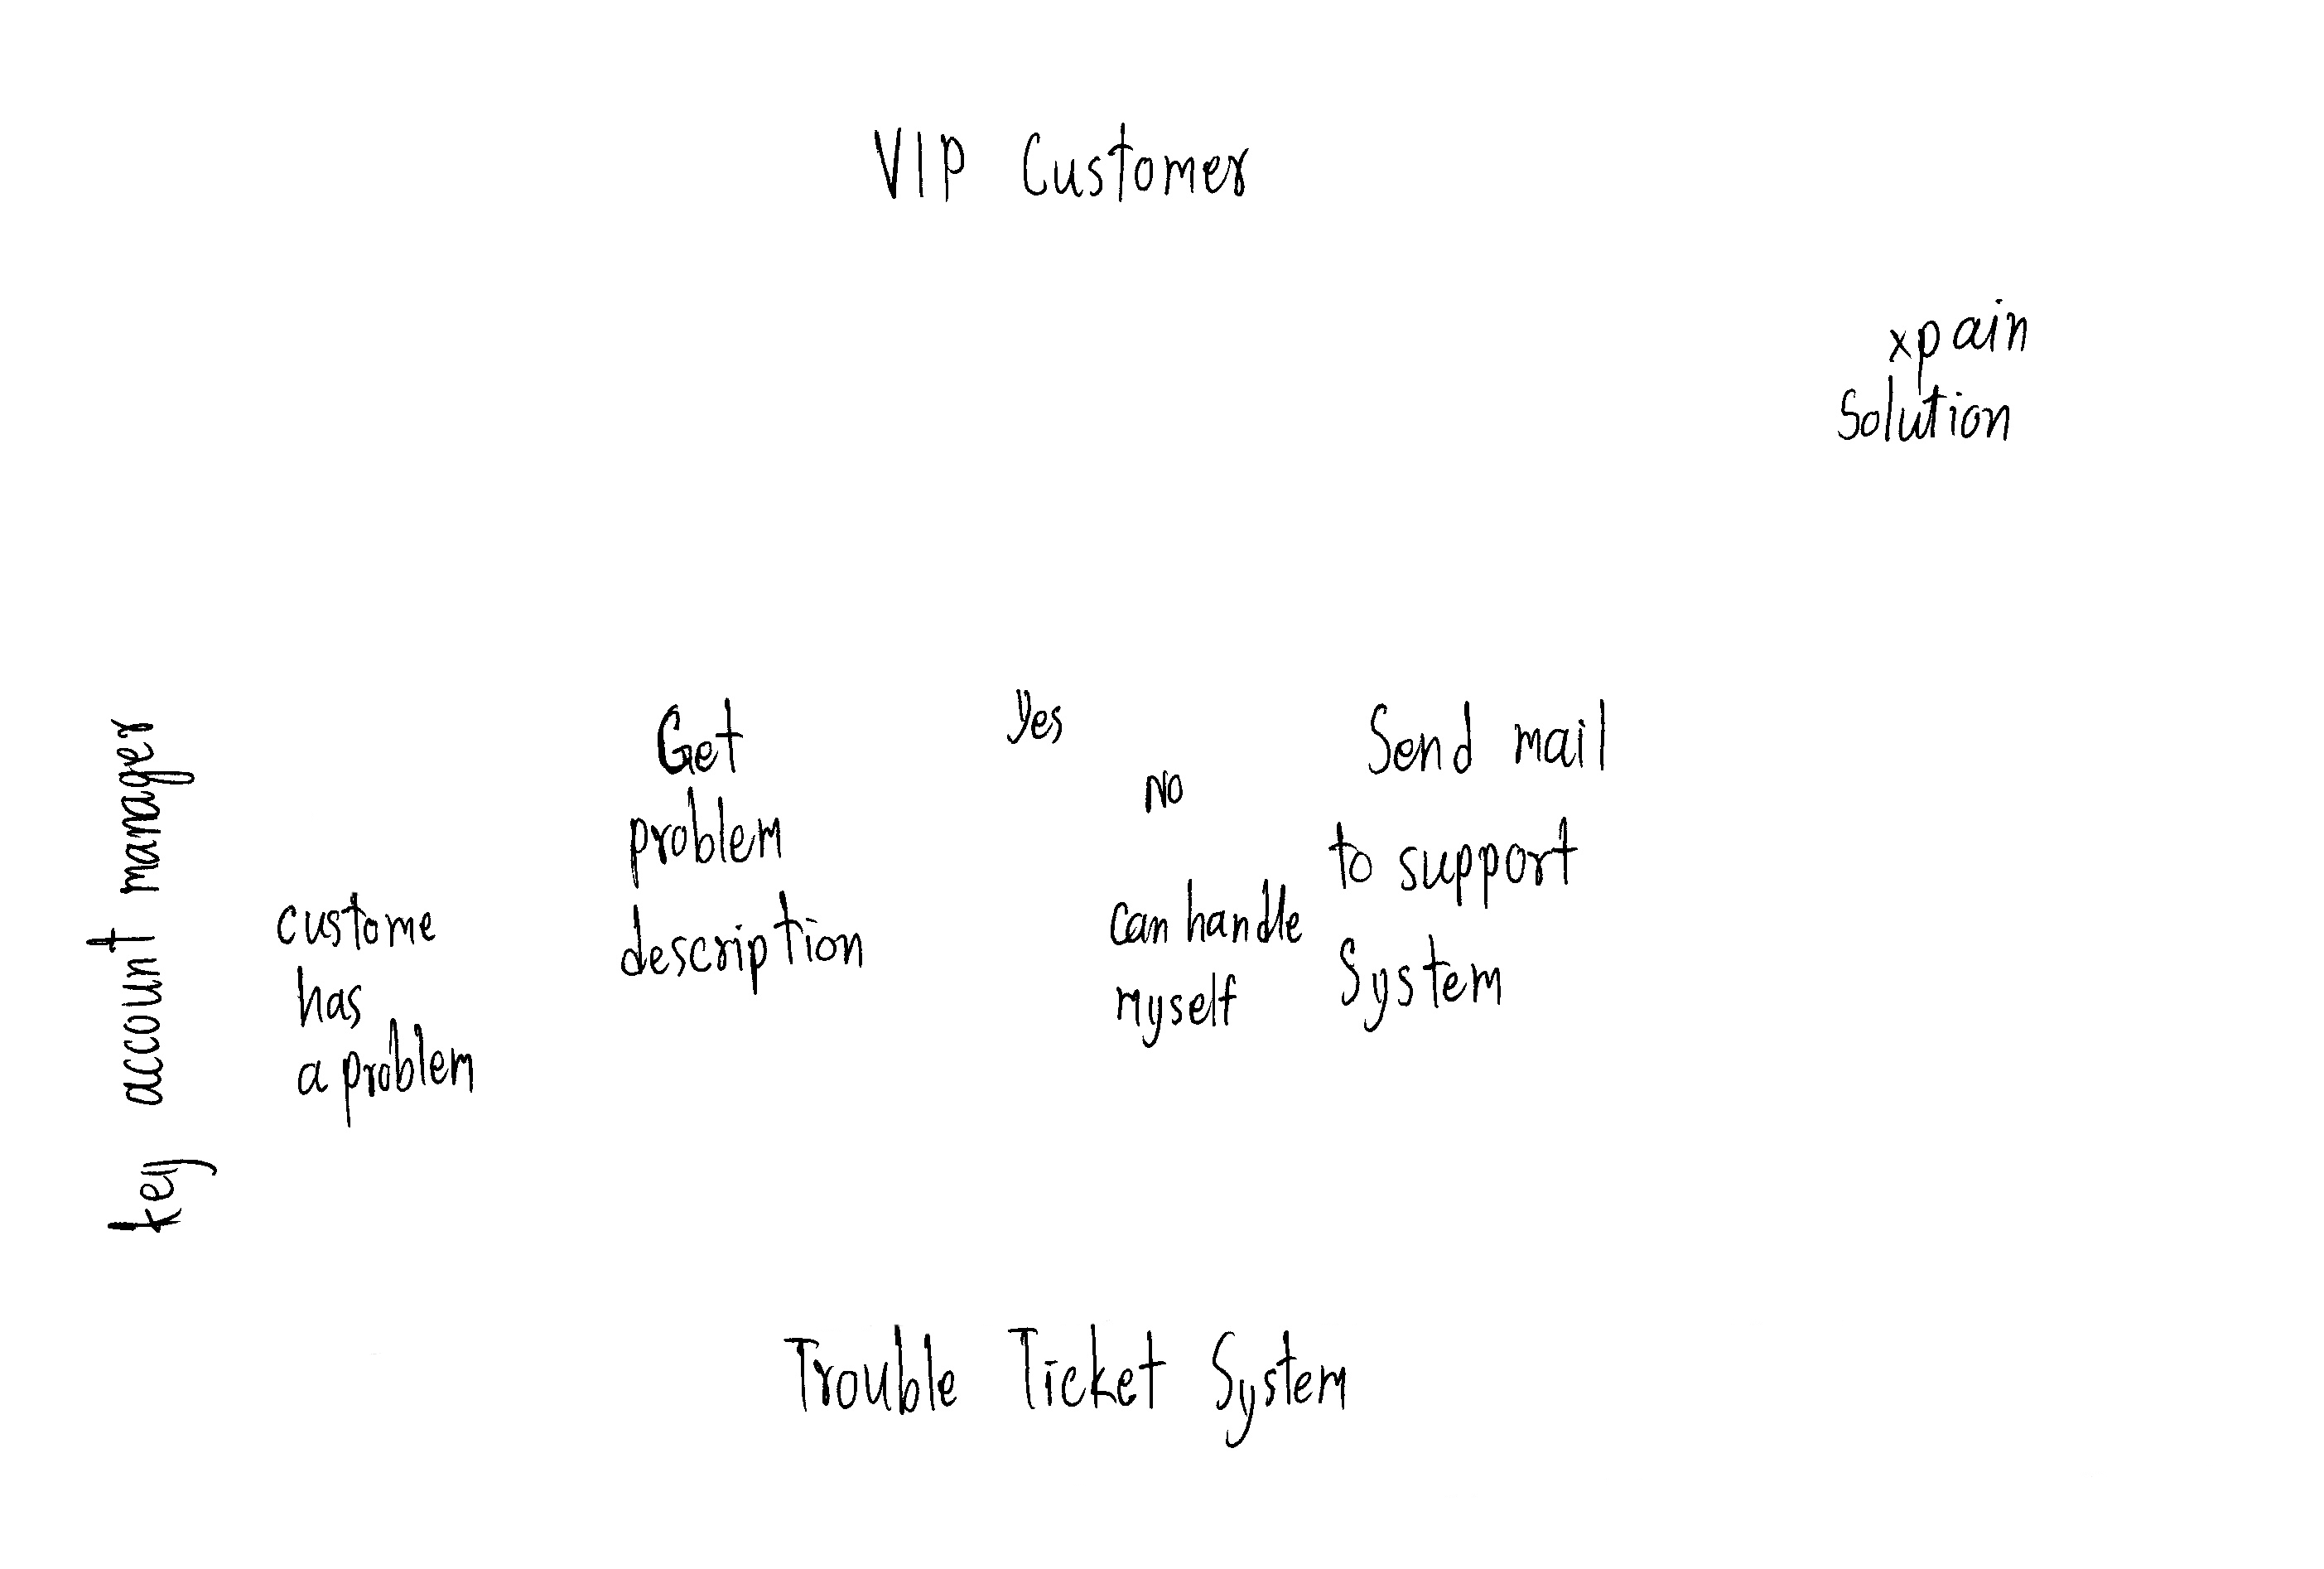 VIP Customer
xpain
Solution
key account manager
custome
has
a problem
Get
problem
description
Yes
No
can handle
myself
Send mail
to support
System
Trouble Ticket System